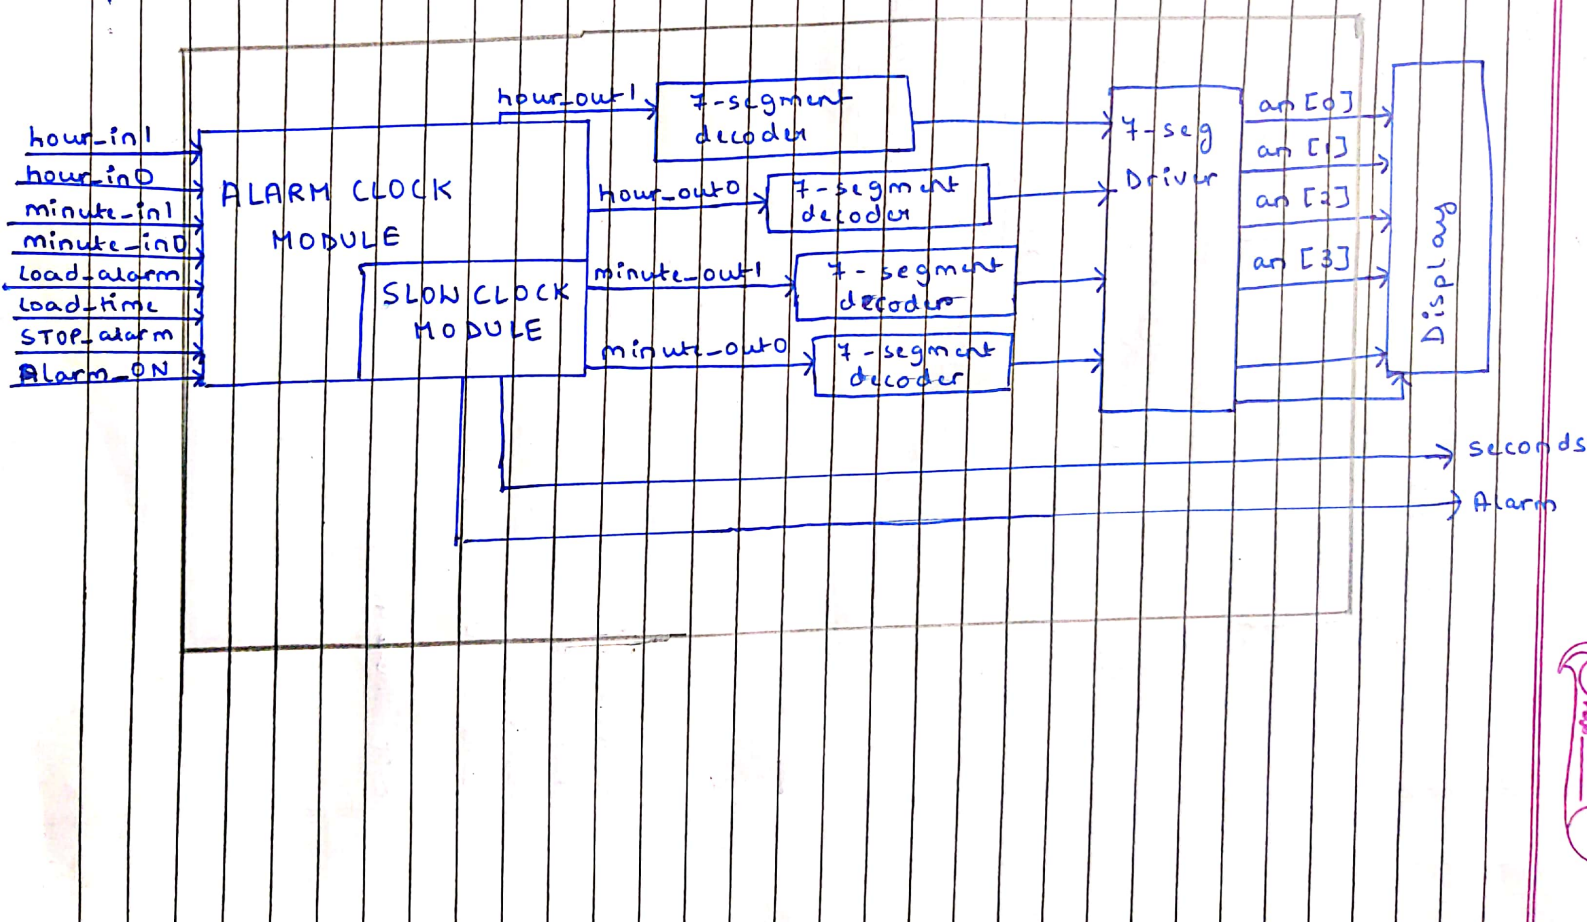 hour_in1
hour_in0
minute_in1
minute_in0
Load_alarm
Load_time
STOP_alarm
Alarm_ON
ALARM CLOCK
MODULE
SLOW CLOCK
MODULE
hour_out1
hour_out0
minute_out1
minute_out0
7-segment
decoder
7-segment
decoder
7-segment
decoder
7-segment
decoder
7-seg
Driver
an [0]
an [1]
an [2]
an [3]
Display
seconds
Alarm